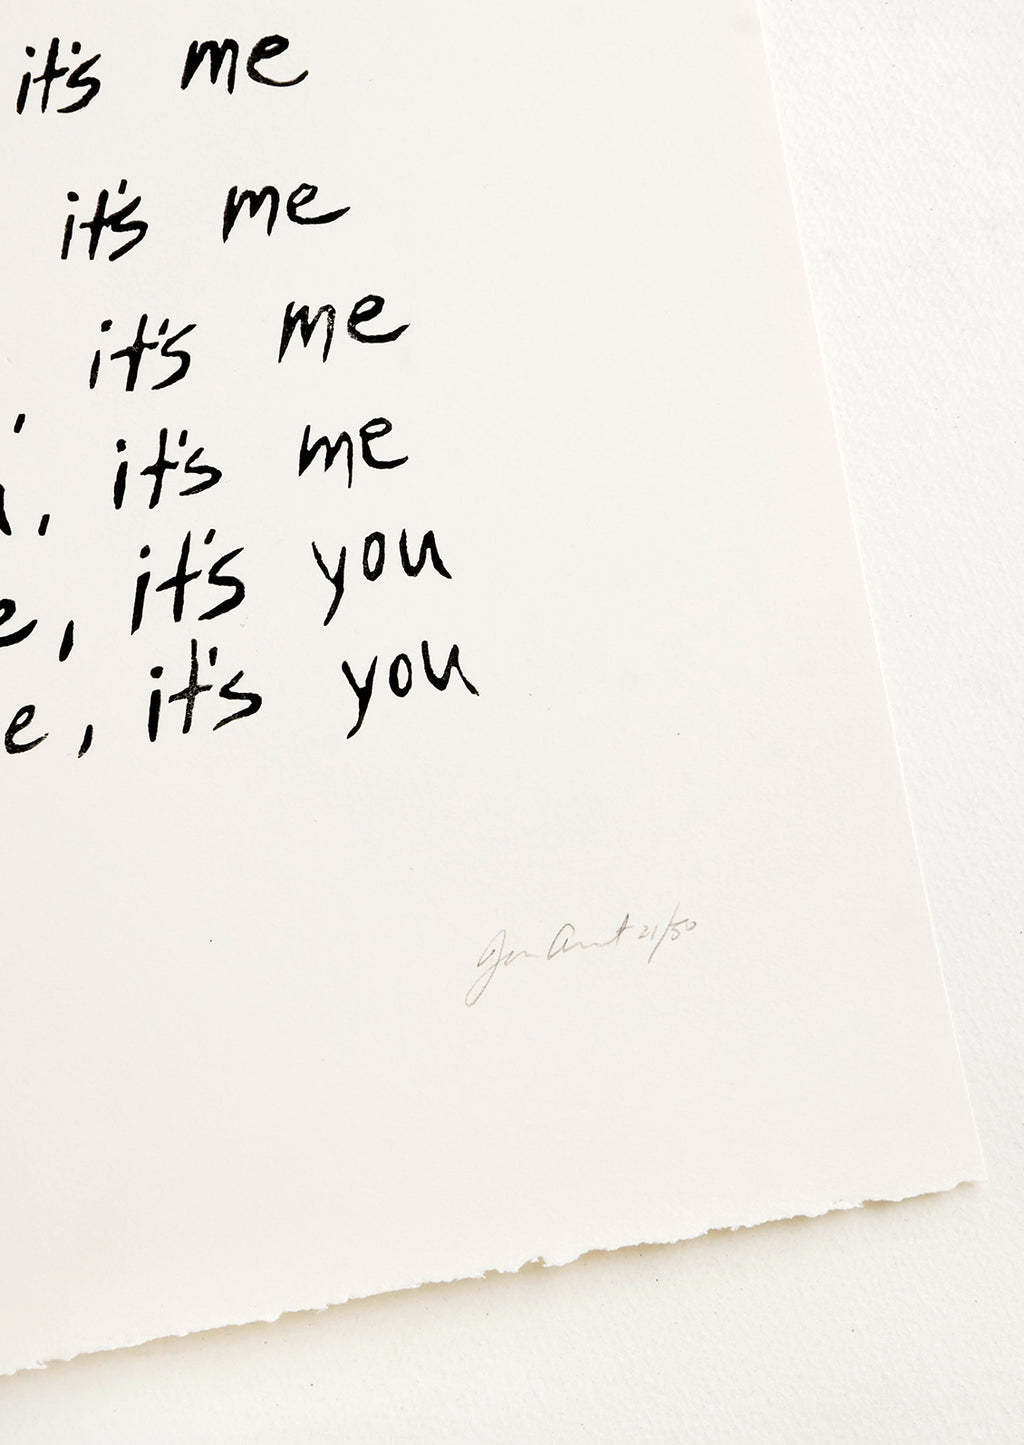 it's me
it's me
it's me
, it's me
, it's you
e, it's you
21/50